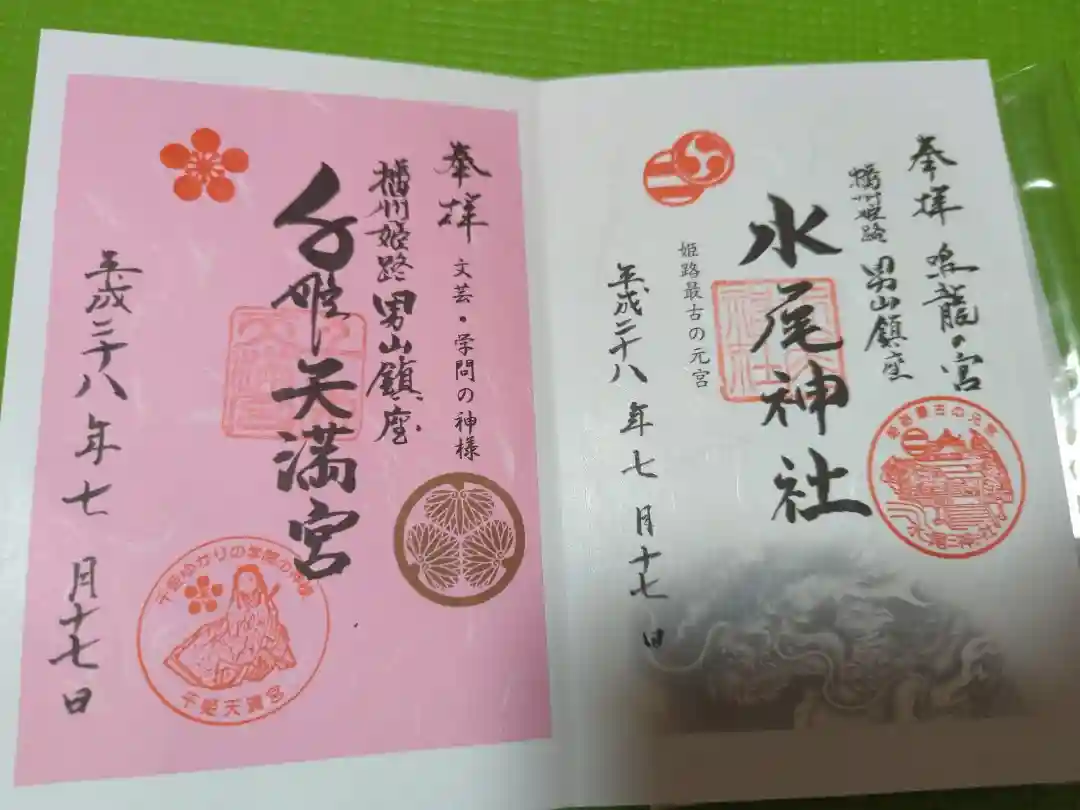 奉拝 鳴龍の宮
播州姫路 男山鎮座
水尾神社
姫路最古の元宮
平成二十八年七月十七日
姫路最古の元宮
水尾神社
奉拝 文芸・学問の神様
播州姫路 男山鎮座
千姫天満宮
平成二十八年七月十七日
千姫ゆかりの学問の神様
千姫天満宮